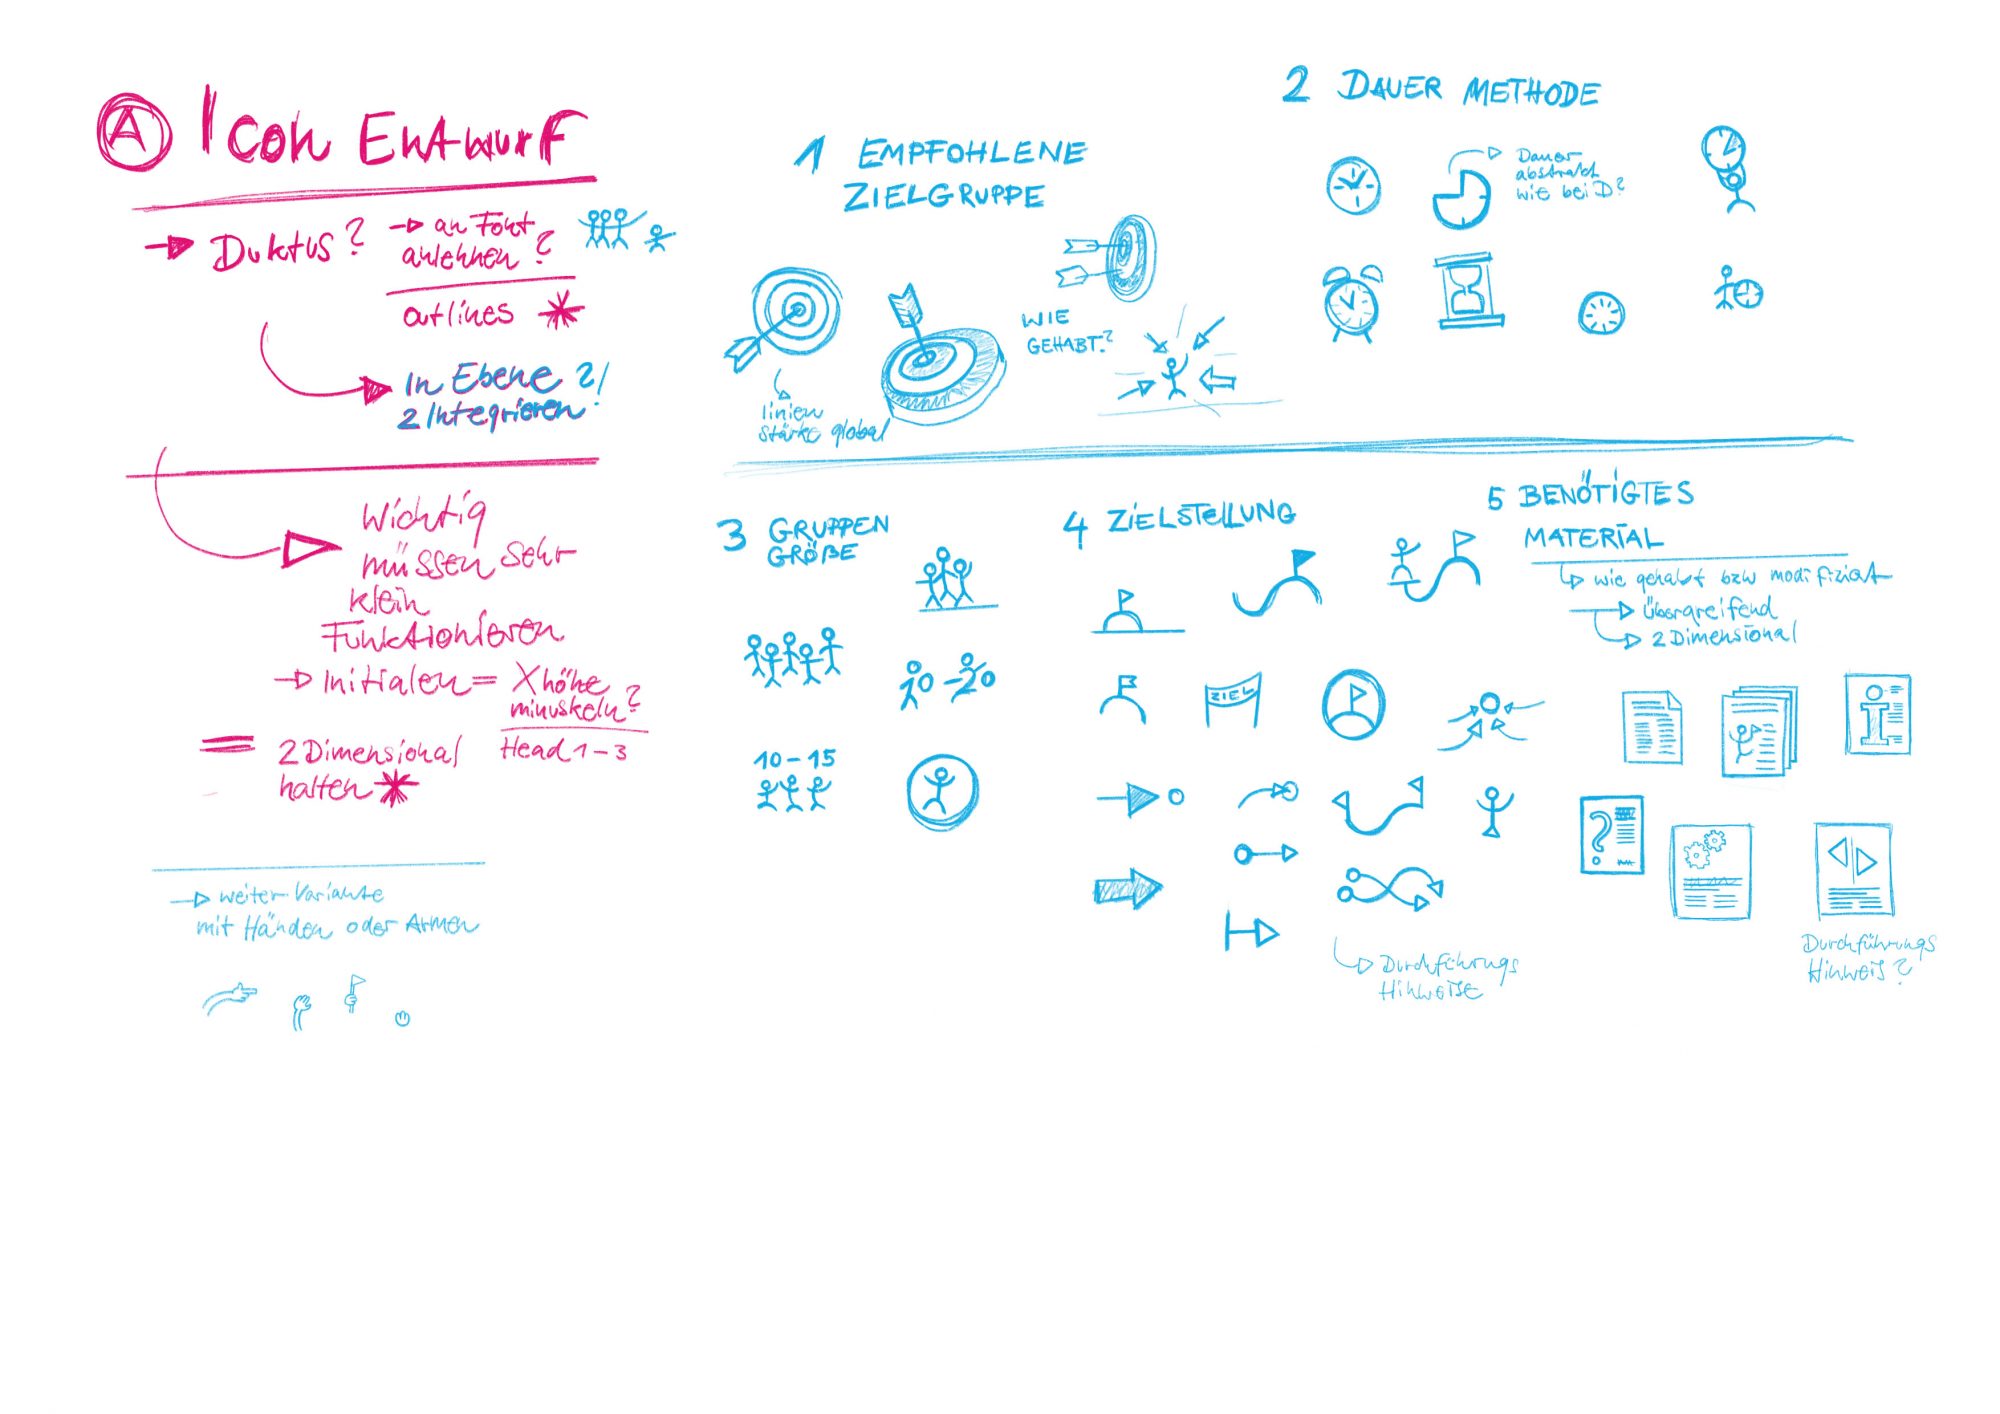 A Icon Entwurf
→ Duktus? → an Font
anlehnen?
outlines *
In Ebene ?!
2 Integrieren
Wichtig
müssen sehr
klein
Funktionieren
→ Initialen = Xhöhe
minuskeln?
Head 1-3
= 2 Dimensional
halten *
→ weiter Variante
mit Händen oder Armen
1 EMPFOHLENE
ZIELGRUPPE
linien
stärke global
WIE
GEHABT?
2 DAUER METHODE
Dauer
abstrakt
wie bei D?
3 GRUPPEN
GRÖßE
10-20
10-15
4 ZIELSTELLUNG
ZIEL
Durchführungs
Hinweise
5 BENÖTIGTES
MATERIAL
wie gehabt bzw modifiziert
→ Übergreifend
→ 2 Dimensional
i
?
Durchführungs
Hinweis?